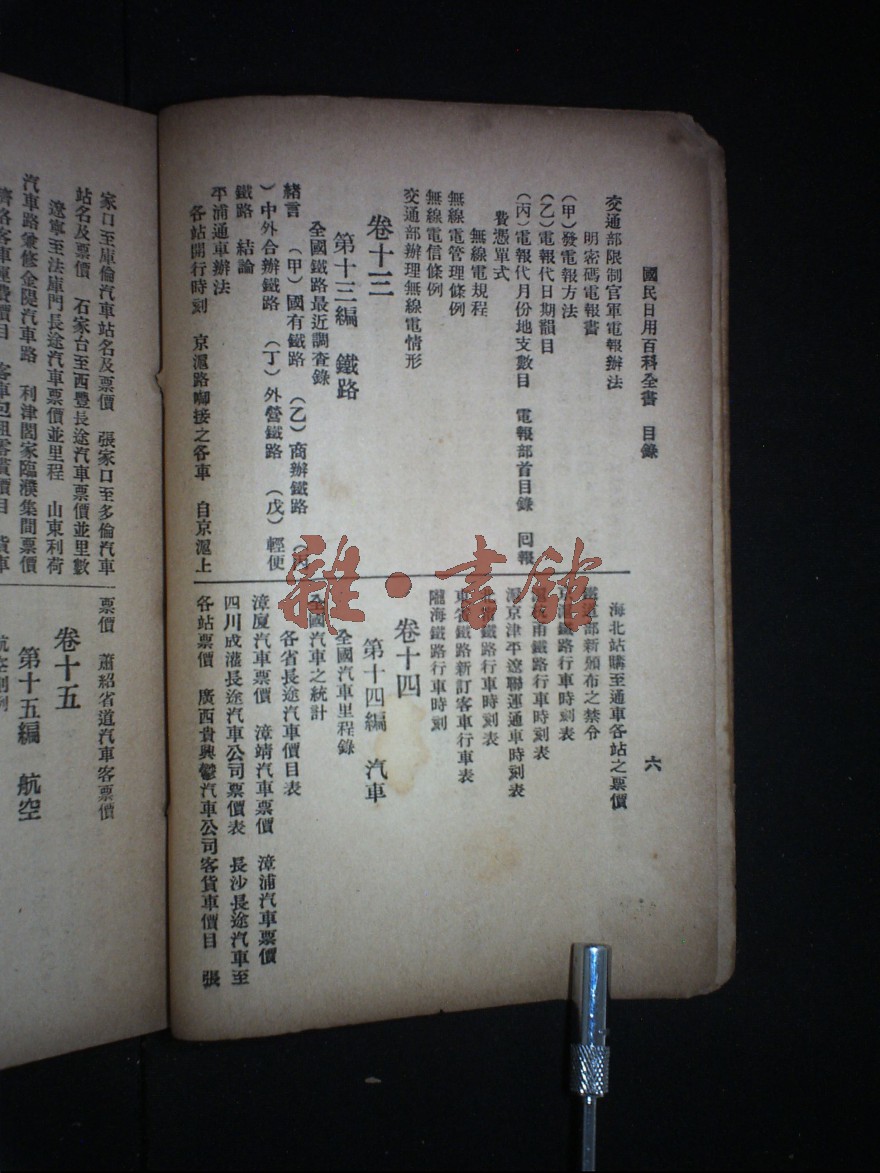 國民日用百科全書　目錄
六
交通部限制官軍電報辦法
明密碼電報書
（甲）發電報方法
（乙）電報代日期韻目
（丙）電報代月份地支數目　電報部首目錄　回報
費憑單式
無線電規程
無線電管理條例
無線電信條例
交通部辦理無線電情形
卷十三
第十三編　鐵路
全國鐵路最近調查錄
緒言　（甲）國有鐵路　（乙）商辦鐵路　（丙
）中外合辦鐵路　（丁）外營鐵路　（戊）輕便
鐵路　結論
平浦通車辦法
各站開行時刻　京滬路啣接之各車　自京滬上
海北站購至通車各站之票價
鐵道部新頒布之禁令
京滬鐵路行車時刻表
鐵路行車時刻表
滬京津平遼聯運通車時刻表
北寧鐵路行車時刻表
東省鐵路新訂客車行車表
隴海鐵路行車時刻
卷十四
第十四編　汽車
全國汽車里程錄
全國汽車之統計
各省長途汽車價目表
漳廈汽車票價　漳靖汽車票價　漳浦汽車票價
四川成灌長途汽車公司票價表　長沙長途汽車至
各站票價　廣西貴興鬱汽車公司客貨車價目　張
家口至庫倫汽車站名及票價　張家口至多倫汽車
站名及票價　石家台至西豐長途汽車票價並里數
遼寧至法庫門長途汽車票價並里程　山東利荷
汽車路兼修金隄汽車路　利津閻家臨濮集間票價
路客車運費價目　客車包租客貨價目　貨車
票價　蕭紹省道汽車客票價
卷十五
第十五編　航空
雜·書館